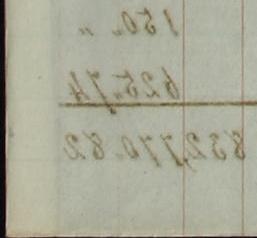 150 „ „
625„74
832,770.82